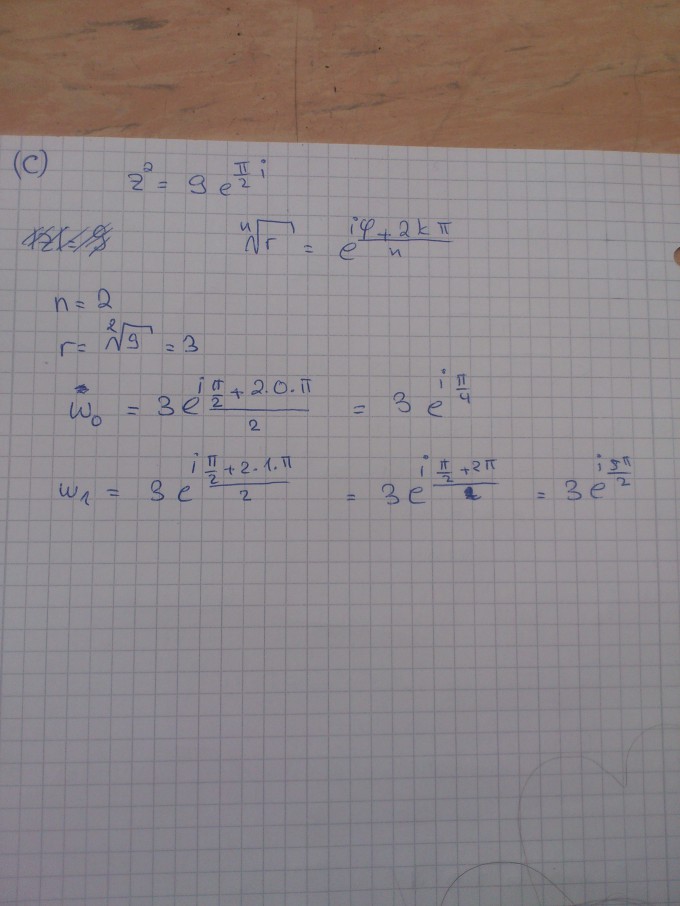 (C)
z² = 9 e^{π/2 i}
ⁿ√r = e^{(iφ + 2kπ)/n}
n = 2
r = ²√9 = 3
w₀ = 3 e^{i (π/2 + 2·0·π)/2} = 3 e^{i π/4}
w₁ = 3 e^{i (π/2 + 2·1·π)/2} = 3 e^{i (π/2 + 2π)/2} = 3 e^{i 5π/2}